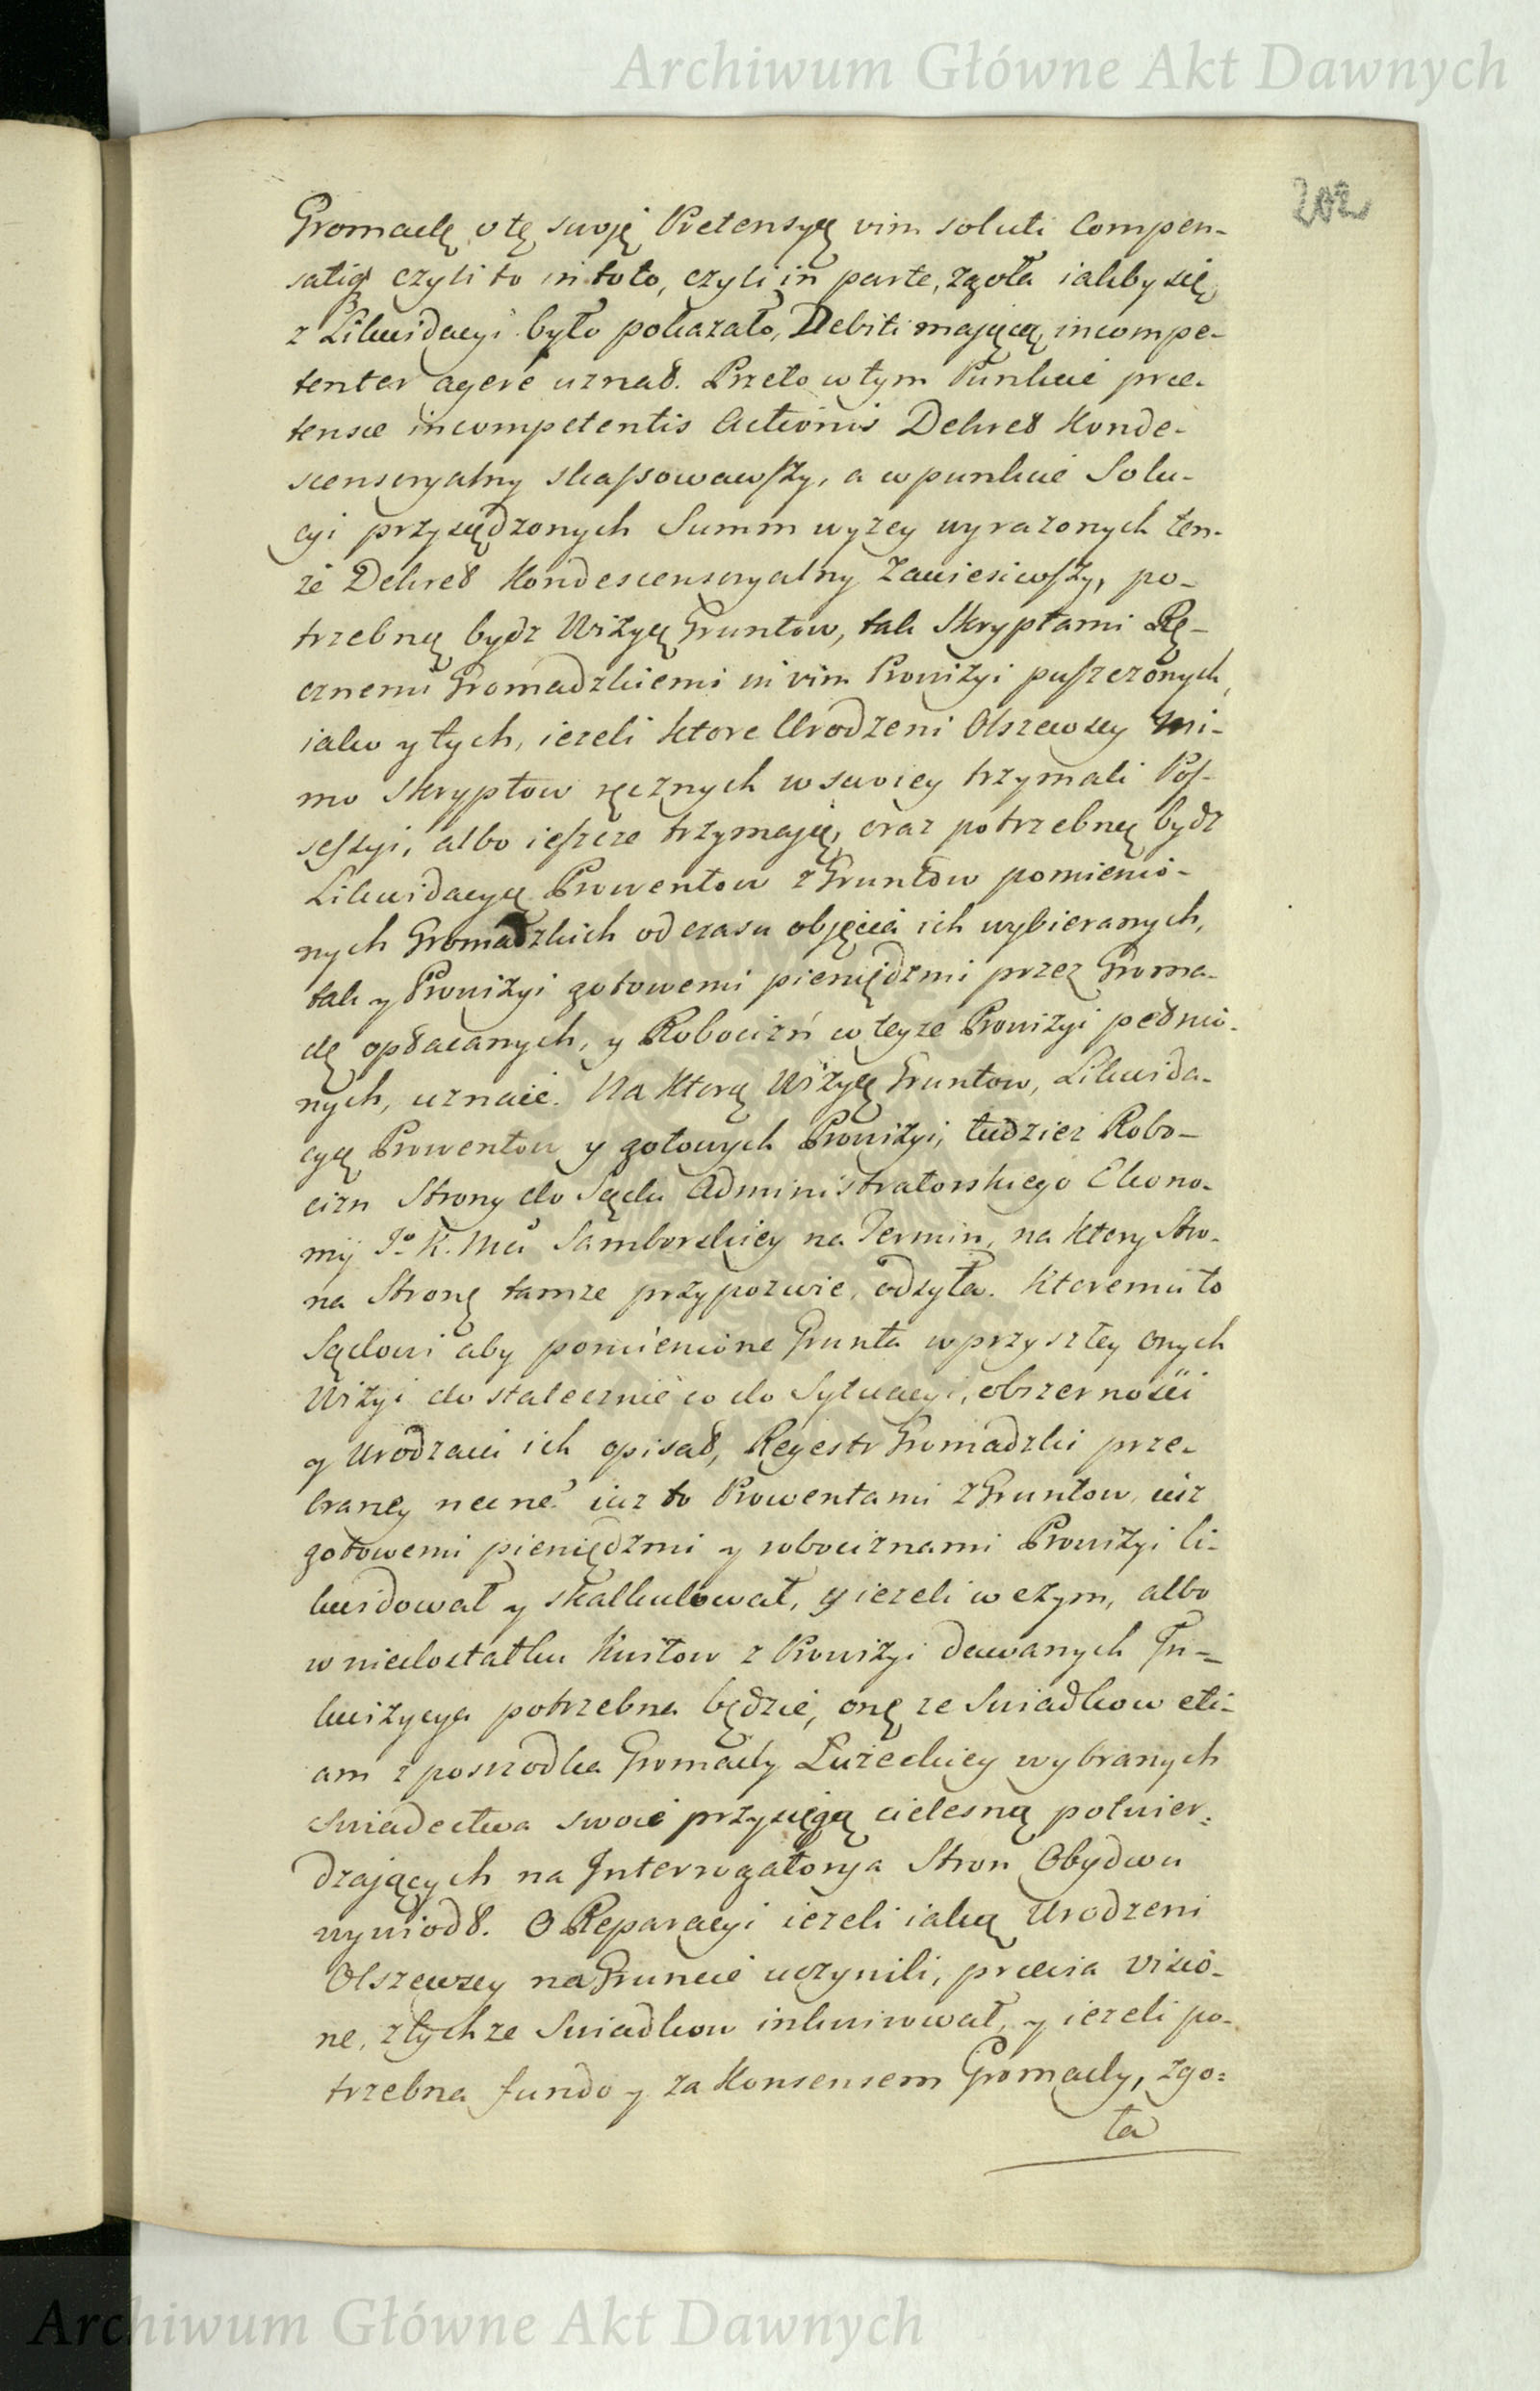 Archiwum Główne Akt Dawnych
202
Gromadę o tę swoję Pretensyą vim soluti Compen-
satiõ czyli to in toto, czyli in parte, zgoła iakby się
z Likwidacyi było pokazało, Debiti mającą, incompe-
tenter agere uznał. Przeto w tym Punkcie præ-
tensæ incompetentis Actionis Dekret Konde-
scensoryalny skassowawszy, a w punkcie Solu-
cyi przysądzonych Summ wyzey wyrazonych ten-
ze Dekret Kondescensoryalny zawiesiwszy, po-
trzebną bydz Wizyą Gruntow, tak Skryptami Rę-
cznemi Gromadzkiemi in vim Prowizyi puszczonych,
iako y tych, iezeli ktore Urodzeni Olszewscy mi-
mo Skryptow ręcznych w swoiey trzymali Pos-
sessyi, albo ieszcze trzymają, oraz potrzebną bydz
Likwidacyą Prowentow z Gruntow pomienio-
nych Gromadzkich od czasu objęcia ich wybieranych,
tak y Prowizyi gotowemi pieniędzmi przez Groma-
dę opłacanych, y Robocizn w teyze Prowizyi pełnio-
nych, uznaie. Na ktorą Wizyą Gruntow, Likwida-
cyą Prowentow y gotowych Prowizyi, tudziez Robo-
cizn Strony do Sądu Administratorskiego Ekono-
mij Jº K. Mci Samborskiey na Termin, na ktory Stro-
na Stronę tamze przypozwie, odsyła. Ktoremu to
Sądowi aby pomienione Grunta w przyszłey onych
Wizyi dostatecznie co do Sytuacyi, obszernosci
y Urodzaiu ich opisał, Regestr Gromadzki prze-
braney
iuz to Prowentami z Gruntow, iuz
gotowemi pieniędzmi y robociznami Prowizyi li-
kwidował y skalkulował, y iezeli w czym, albo
w niedostatku Kwitow z Prowizyi dawanych In-
kwizycya potrzebna będzie, onę ze Swiadkow eti-
am z posrzodka Gromady Łużeckiey wybranych
Swiadectwa swoie przysięgą cielesną potwier-
dzających na Interrogatorya Stron Obydwu
wywiodł. O Reparacyi iezeli iaką Urodzeni
Olszewscy na Gruncie uczynili, prævia visio-
ne, z tychze Swiadkow inkwirował, y iezeli po-
trzebna fundo y za Konsensem Gromady, zgo-
ła
Archiwum Główne Akt Dawnych